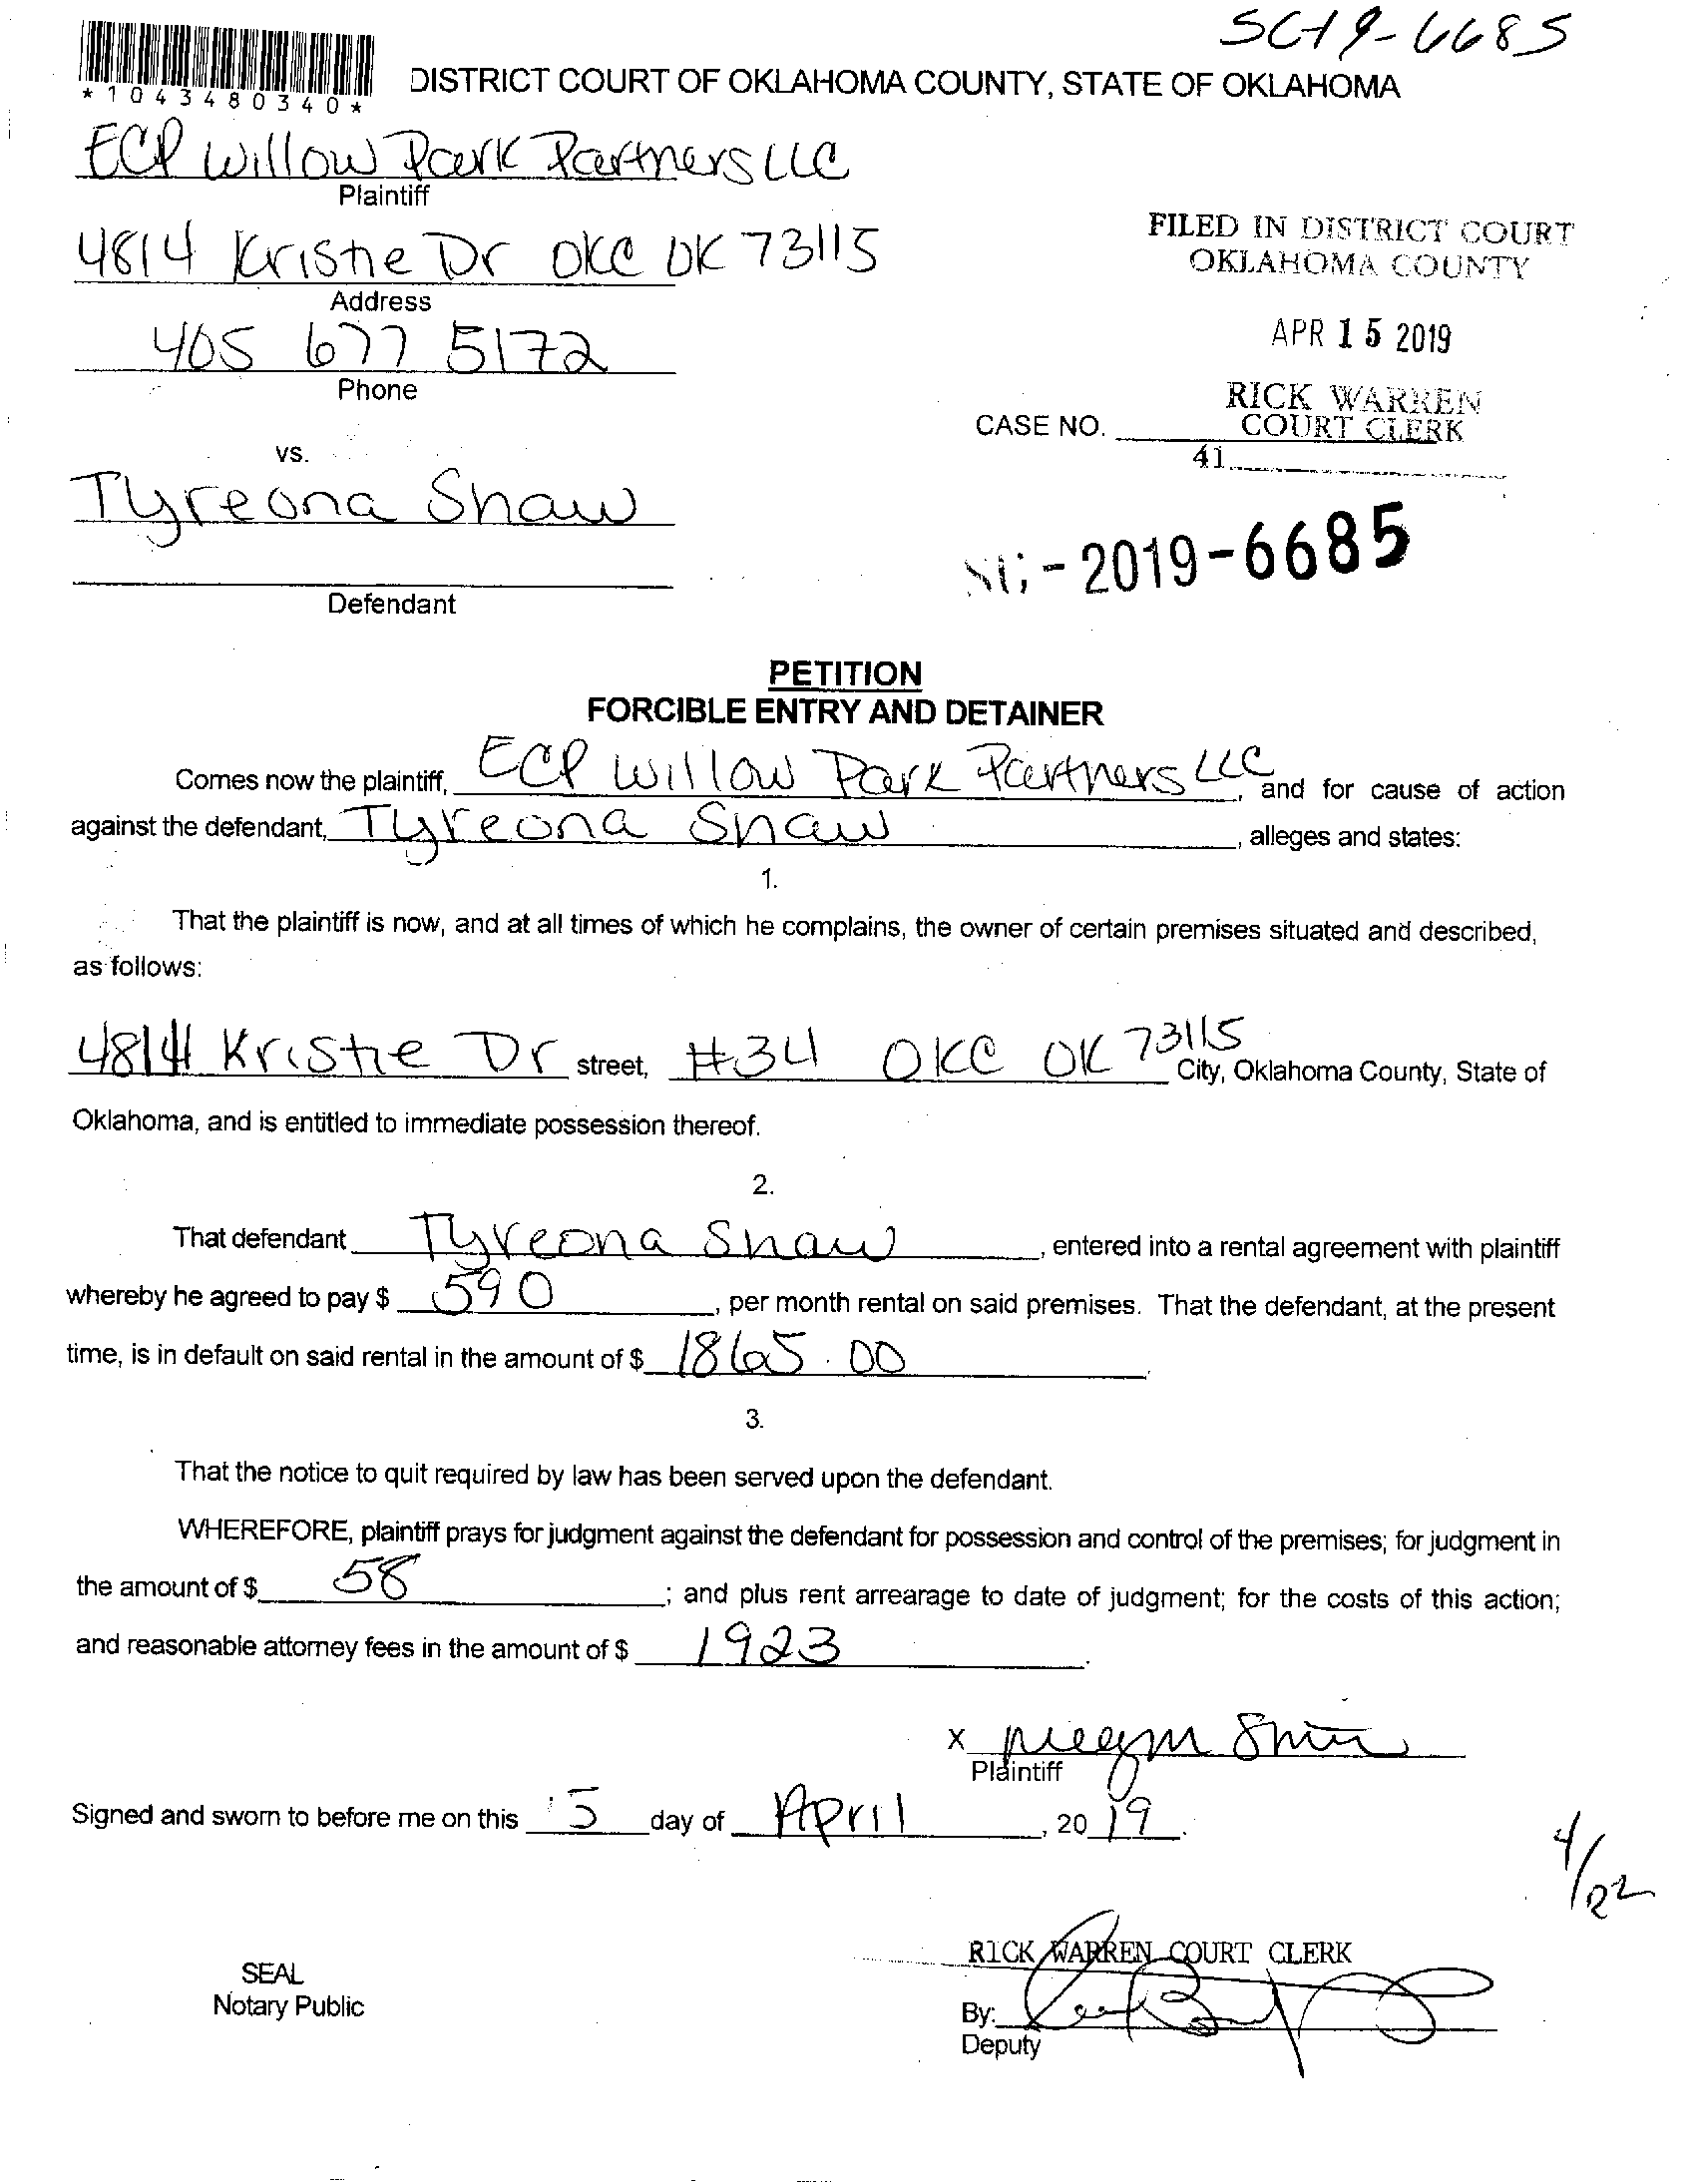 SC-19-6685
*1043480340*
DISTRICT COURT OF OKLAHOMA COUNTY, STATE OF OKLAHOMA
ECP Willow Park Partners LLC
Plaintiff
4814 Kristie Dr OKC OK 73115
Address
FILED IN DISTRICT COURT
OKLAHOMA COUNTY
405 677 5172
Phone
APR 15 2019
RICK WARREN
COURT CLERK
CASE NO.
41
vs.
Tyreona Shaw
Defendant
SC-2019-6685
PETITION
FORCIBLE ENTRY AND DETAINER
Comes now the plaintiff, ECP Willow Park Partners LLC, and for cause of action
against the defendant, Tyreona Shaw, alleges and states:
1.
That the plaintiff is now, and at all times of which he complains, the owner of certain premises situated and described,
as follows:
4814 Kristie Dr street, #34 OKC OK 73115 City, Oklahoma County, State of
Oklahoma, and is entitled to immediate possession thereof.
2.
That defendant Tyreona Shaw, entered into a rental agreement with plaintiff
whereby he agreed to pay $ 590, per month rental on said premises. That the defendant, at the present
time, is in default on said rental in the amount of $ 1865.00.
3.
That the notice to quit required by law has been served upon the defendant.
WHEREFORE, plaintiff prays for judgment against the defendant for possession and control of the premises; for judgment in
the amount of $ 58; and plus rent arrearage to date of judgment; for the costs of this action;
and reasonable attorney fees in the amount of $ 1923.
X Megan
Plaintiff
Signed and sworn to before me on this 15 day of April, 2019.
4/22
RICK WARREN COURT CLERK
SEAL
Notary Public
By:
Deputy